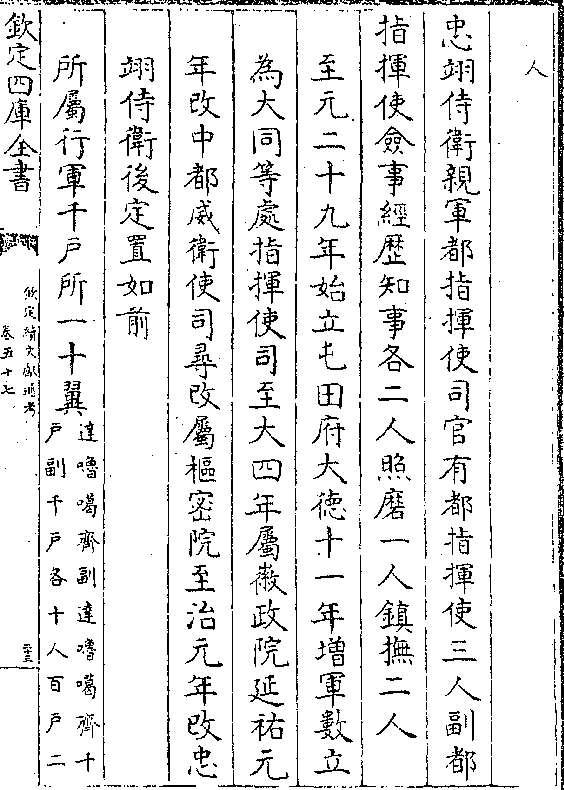 人
忠翊侍衛親軍都指揮使司官有都指揮使三人副都
指揮使僉事經歷知事各二人照磨一人鎮撫二人
至元二十九年始立屯田府大徳十一年増軍數立
為大同等處指揮使司至大四年屬徽政院延祐元
年改中都威衛使司尋改屬樞密院至治元年改忠
翊侍衛後定置如前
所屬行軍千戶所一十翼達嚕噶齊副達嚕噶齊十
戶副千戶各十人百戶二
欽定四庫全書
欽定續文獻通考
卷五十七